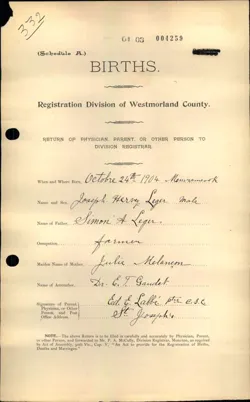 332
01 09 004259
(Schedule A.)
BIRTHS.
Registration Division of Westmorland County.
RETURN OF PHYSICIAN, PARENT, OR OTHER PERSON TO
DIVISION REGISTRAR.
When and Where Born, Octobre 24th 1904 Memramcook
Name and Sex, Joseph Harvey Leger male
Name of Father, Simon A Leger
Occupation, farmer
Maiden Name of Mother, Julie Melançon
Name of Accoucher, Dr. E. T. Gaudet
Signature of Parent,
Physician, or Other
Person, and Post
Office Address
Ed. E. Labbé ptre c.s.c.
St Joseph
NOTE. The above Return is to be filled in carefully and separately by Physician, Parent,
or other Person, and forwarded to
Act of Assembly,
Deaths and Marriages."